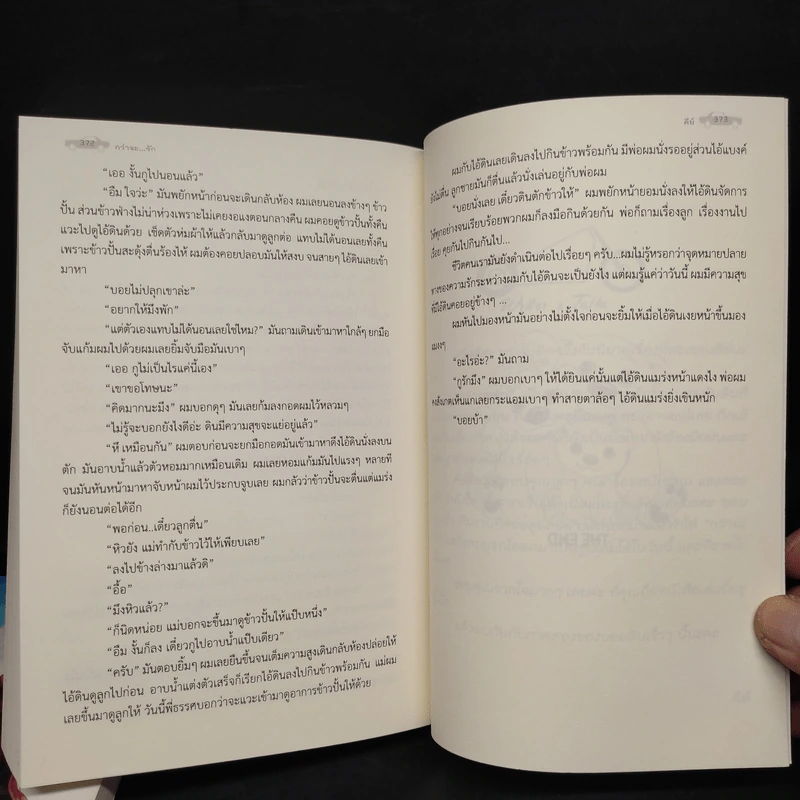 372 กว่าจะ...รัก
“เออ งั้นกูไปนอนแล้ว”
“อืม ใจว่ะ” มันพยักหน้าก่อนจะเดินกลับห้อง ผมเลยนอนลงข้างๆ ข้าว
ปั้น ส่วนข้าวฟ่างไม่น่าห่วงเพราะไม่เคยงอแงตอนกลางคืน ผมคอยดูข้าวปั้นทั้งคืน
แวะไปดูไอ้ดินด้วย เช็ดตัวห่มผ้าให้แล้วกลับมาดูลูกต่อ แทบไม่ได้นอนเลยทั้งคืน
เพราะข้าวปั้นสะดุ้งตื่นร้องไห้ ผมต้องคอยปลอบมันให้สงบ จนสายๆ ไอ้ดินเลยเข้า
มาหา
“บอยไม่ปลุกเขาล่ะ”
“อยากให้มึงพัก”
“แต่ตัวเองแทบไม่ได้นอนเลยใช่ไหม?” มันถามเดินเข้ามาใกล้ๆ ยกมือ
จับแก้มผมไปด้วยผมเลยยิ้มจับมือมันเบาๆ
“เออ กูไม่เป็นไรแค่นี้เอง”
“เขาขอโทษนะ”
“คิดมากนะมึง” ผมบอกดุๆ มันเลยก้มลงกอดผมไว้หลวมๆ
“ไม่รู้จะบอกยังไงดีอ่ะ ดินมีความสุขจะแย่อยู่แล้ว”
“หึ เหมือนกัน” ผมตอบก่อนจะยกมือกอดมันเข้ามาดึงไอ้ดินนั่งลงบน
ตัก มันอาบน้ำแล้วตัวหอมมากเหมือนเดิม ผมเลยหอมแก้มมันไปแรงๆ หลายที
จนมันหันหน้ามาหาจับหน้าผมไว้ประกบจูบเลย ผมกลัวว่าข้าวปั้นจะตื่นแต่แมร่ง
ก็ยังนอนต่อได้อีก
“พอก่อน..เดี๋ยวลูกตื่น”
“หิวยัง แม่ทำกับข้าวไว้ให้เพียบเลย”
“ลงไปข้างล่างมาแล้วดิ”
“อื้อ”
“มึงหิวแล้ว?”
“ก็นิดหน่อย แม่บอกจะขึ้นมาดูข้าวปั้นให้แป๊บหนึ่ง”
“อืม งั้นก็ลง เดี๋ยวกูไปอาบน้ำแป๊บเดียว”
“ครับ” มันตอบยิ้มๆ ผมเลยยืนขึ้นจนเต็มความสูงเดินกลับห้องปล่อยให้
ไอ้ดินดูลูกไปก่อน อาบน้ำแต่งตัวเสร็จก็เรียกไอ้ดินลงไปกินข้าวพร้อมกัน แม่ผม
เลยขึ้นมาดูลูกให้ วันนี้พี่ธรรศบอกว่าจะแวะเข้ามาดูอาการข้าวปั้นให้ด้วย
คีย์ 373
ผมกับไอ้ดินเลยเดินลงไปกินข้าวพร้อมกัน มีพ่อผมนั่งรออยู่ส่วนไอ้แบงค์
ยังไม่ตื่น ลูกชายมันก็ตื่นแล้วนั่งเล่นอยู่กับพ่อผม
“บอยนั่งเลย เดี๋ยวดินตักข้าวให้” ผมพยักหน้ายอมนั่งลงให้ไอ้ดินจัดการ
ให้ทุกอย่างจนเรียบร้อยพวกผมก็ลงมือกินด้วยกัน พ่อก็ถามเรื่องลูก เรื่องงานไป
เรื่อย คุยกันไปกินกันไป...
ชีวิตคนเรามันยังดำเนินต่อไปเรื่อยๆ ครับ...ผมไม่รู้หรอกว่าจุดหมายปลาย
ทางของความรักระหว่างผมกับไอ้ดินจะเป็นยังไง แต่ผมรู้แค่ว่าวันนี้ ผมมีความสุข
ที่มีไอ้ดินคอยอยู่ข้างๆ ...
ผมหันไปมองหน้ามันอย่างไม่ตั้งใจก่อนจะยิ้มให้เมื่อไอ้ดินเงยหน้าขึ้นมอง
แมงๆ
“อะไรอ่ะ?” มันถาม
“กูรักมึง” ผมบอกเบาๆ ให้ได้ยินแค่นั้นแต่ไอ้ดินแมร่งหน้าแดงไง พ่อผม
คงสังเกตเห็นแกเลยกระแอมเบาๆ ทำสายตาล้อๆ ไอ้ดินแมร่งยิ่งเขินหนัก
“บอยบ้า”
THE END